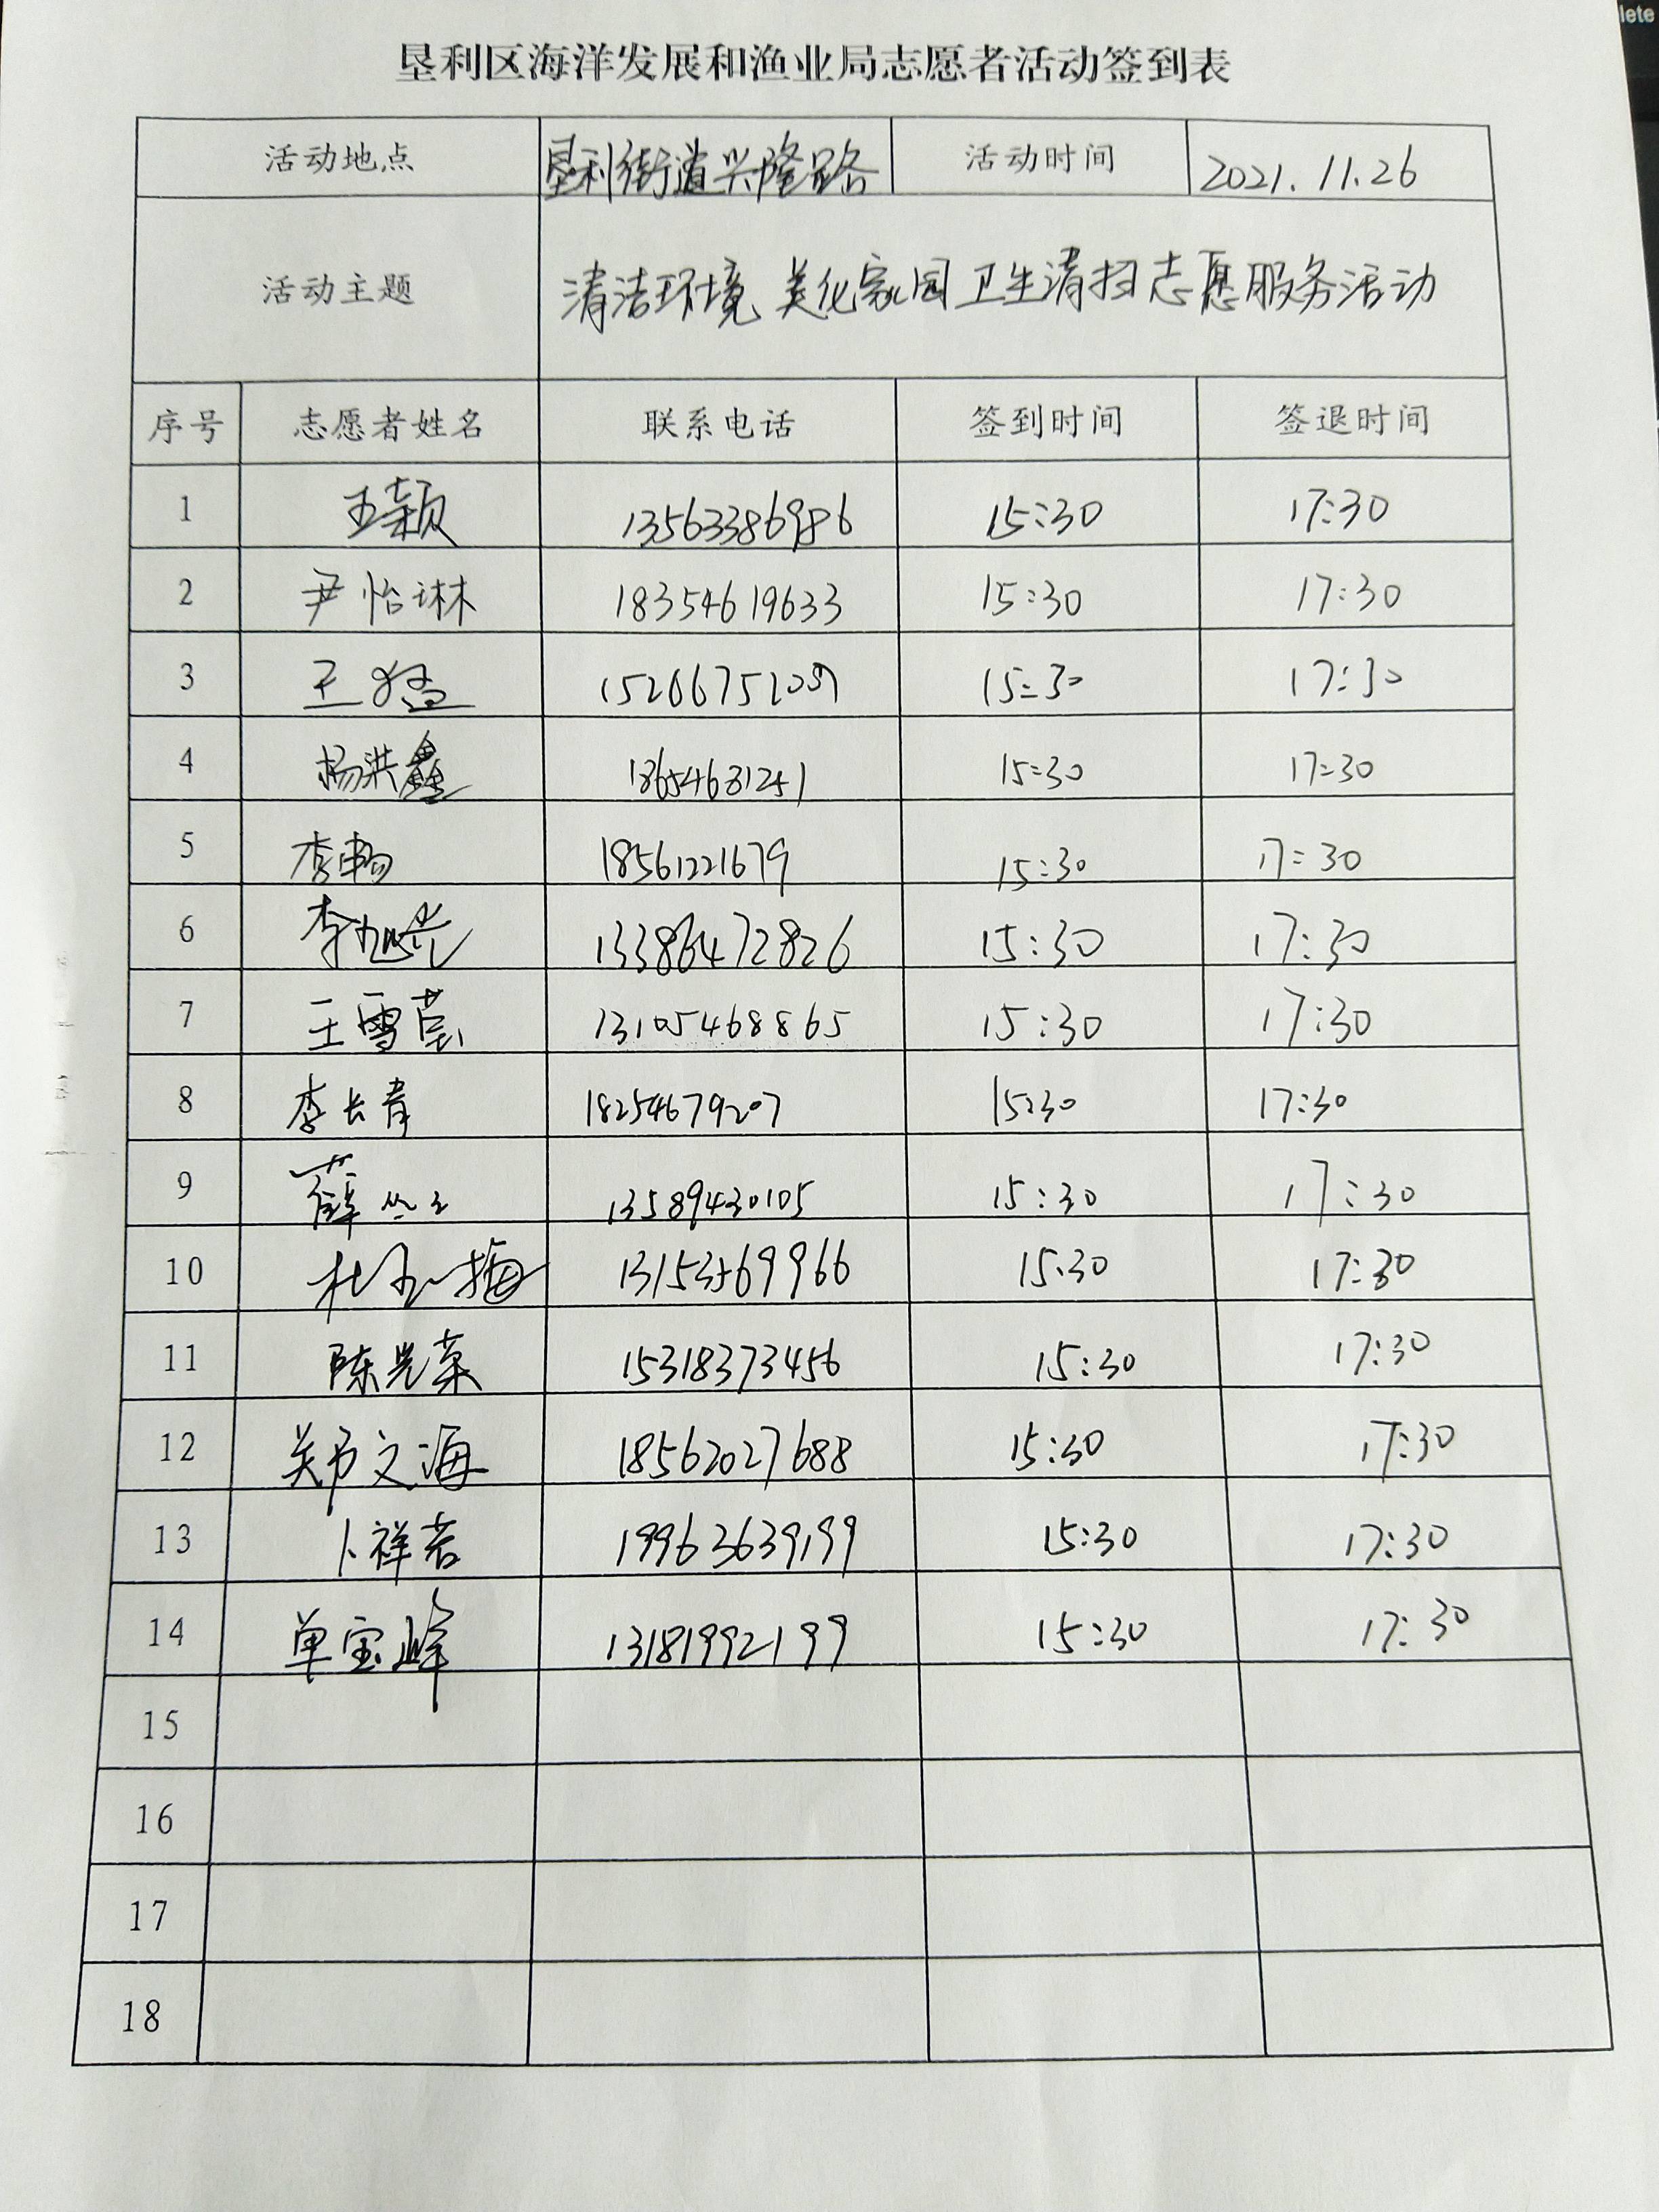 lete
垦利区海洋发展和渔业局志愿者活动签到表
活动地点 垦利街道兴隆路 活动时间 2021.11.26
活动主题 清洁环境 美化家园卫生清扫志愿服务活动
序号 志愿者姓名 联系电话 签到时间 签退时间
1 王颖 13563386986 15:30 17:30
2 尹怡琳 18354619633 15:30 17:30
3 王猛 15:30 17:30
4 杨洪鑫 18654681251 15:30 17:30
5 李畅 18561221679 15:30 17:30
6 李旭光 13386472826 15:30 17:30
7 王雪莹 13105468865 15:30 17:30
8 李长青 18254679207 15:30 17:30
9 薛 13589430105 15:30 17:30
10 杜玉梅 13153469966 15:30 17:30
11 陈光荣 15318373456 15:30 17:30
12 郑文海 18562027688 15:30 17:30
13 卜祥若 19963639199 15:30 17:30
14 单宝峰 13181992199 15:30 17:30
15
16
17
18